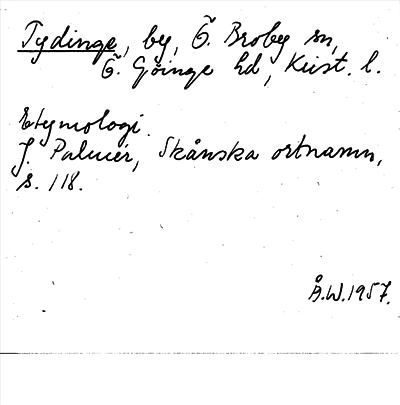 Tydinge, by, Ö. Broby sn,
Ö. Göinge hd, Krist. l.
Etymologi.
J. Palmér, Skånska ortnamn,
s. 118.
Å.W. 1957.